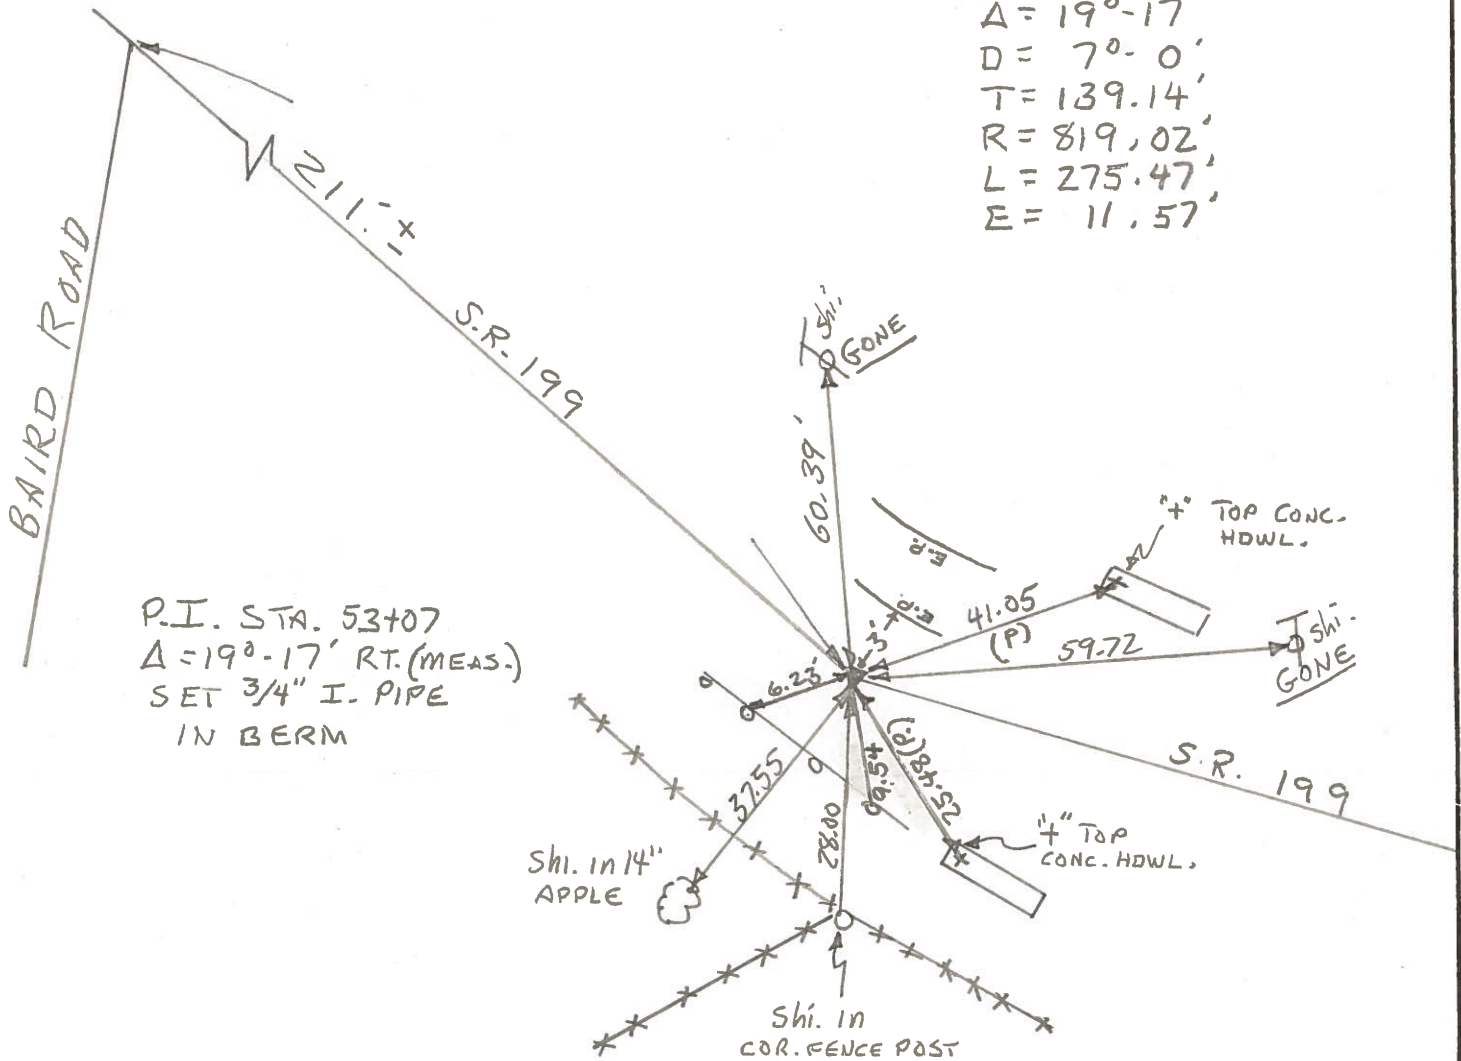 Δ = 19°-17'
D = 7°- 0'
T = 139.14'
R = 819.02'
L = 275.47'
E = 11.57'
BAIRD ROAD
211.'±
S.R. 199
Shi.
GONE
60.39'
E.P.
E.P.
3'±
"+" TOP CONC.
HDWL.
41.05
(P)
59.72
Shi.
GONE
P.I. STA. 53+07
Δ = 19°-17' RT. (MEAS.)
SET 3/4" I. PIPE
IN BERM
6.23'
37.55
28.00
9.54
25.48(P.)
S.R. 199
"+" TOP
CONC. HDWL.
Shi. in 14"
APPLE
Shi. in
COR. FENCE POST